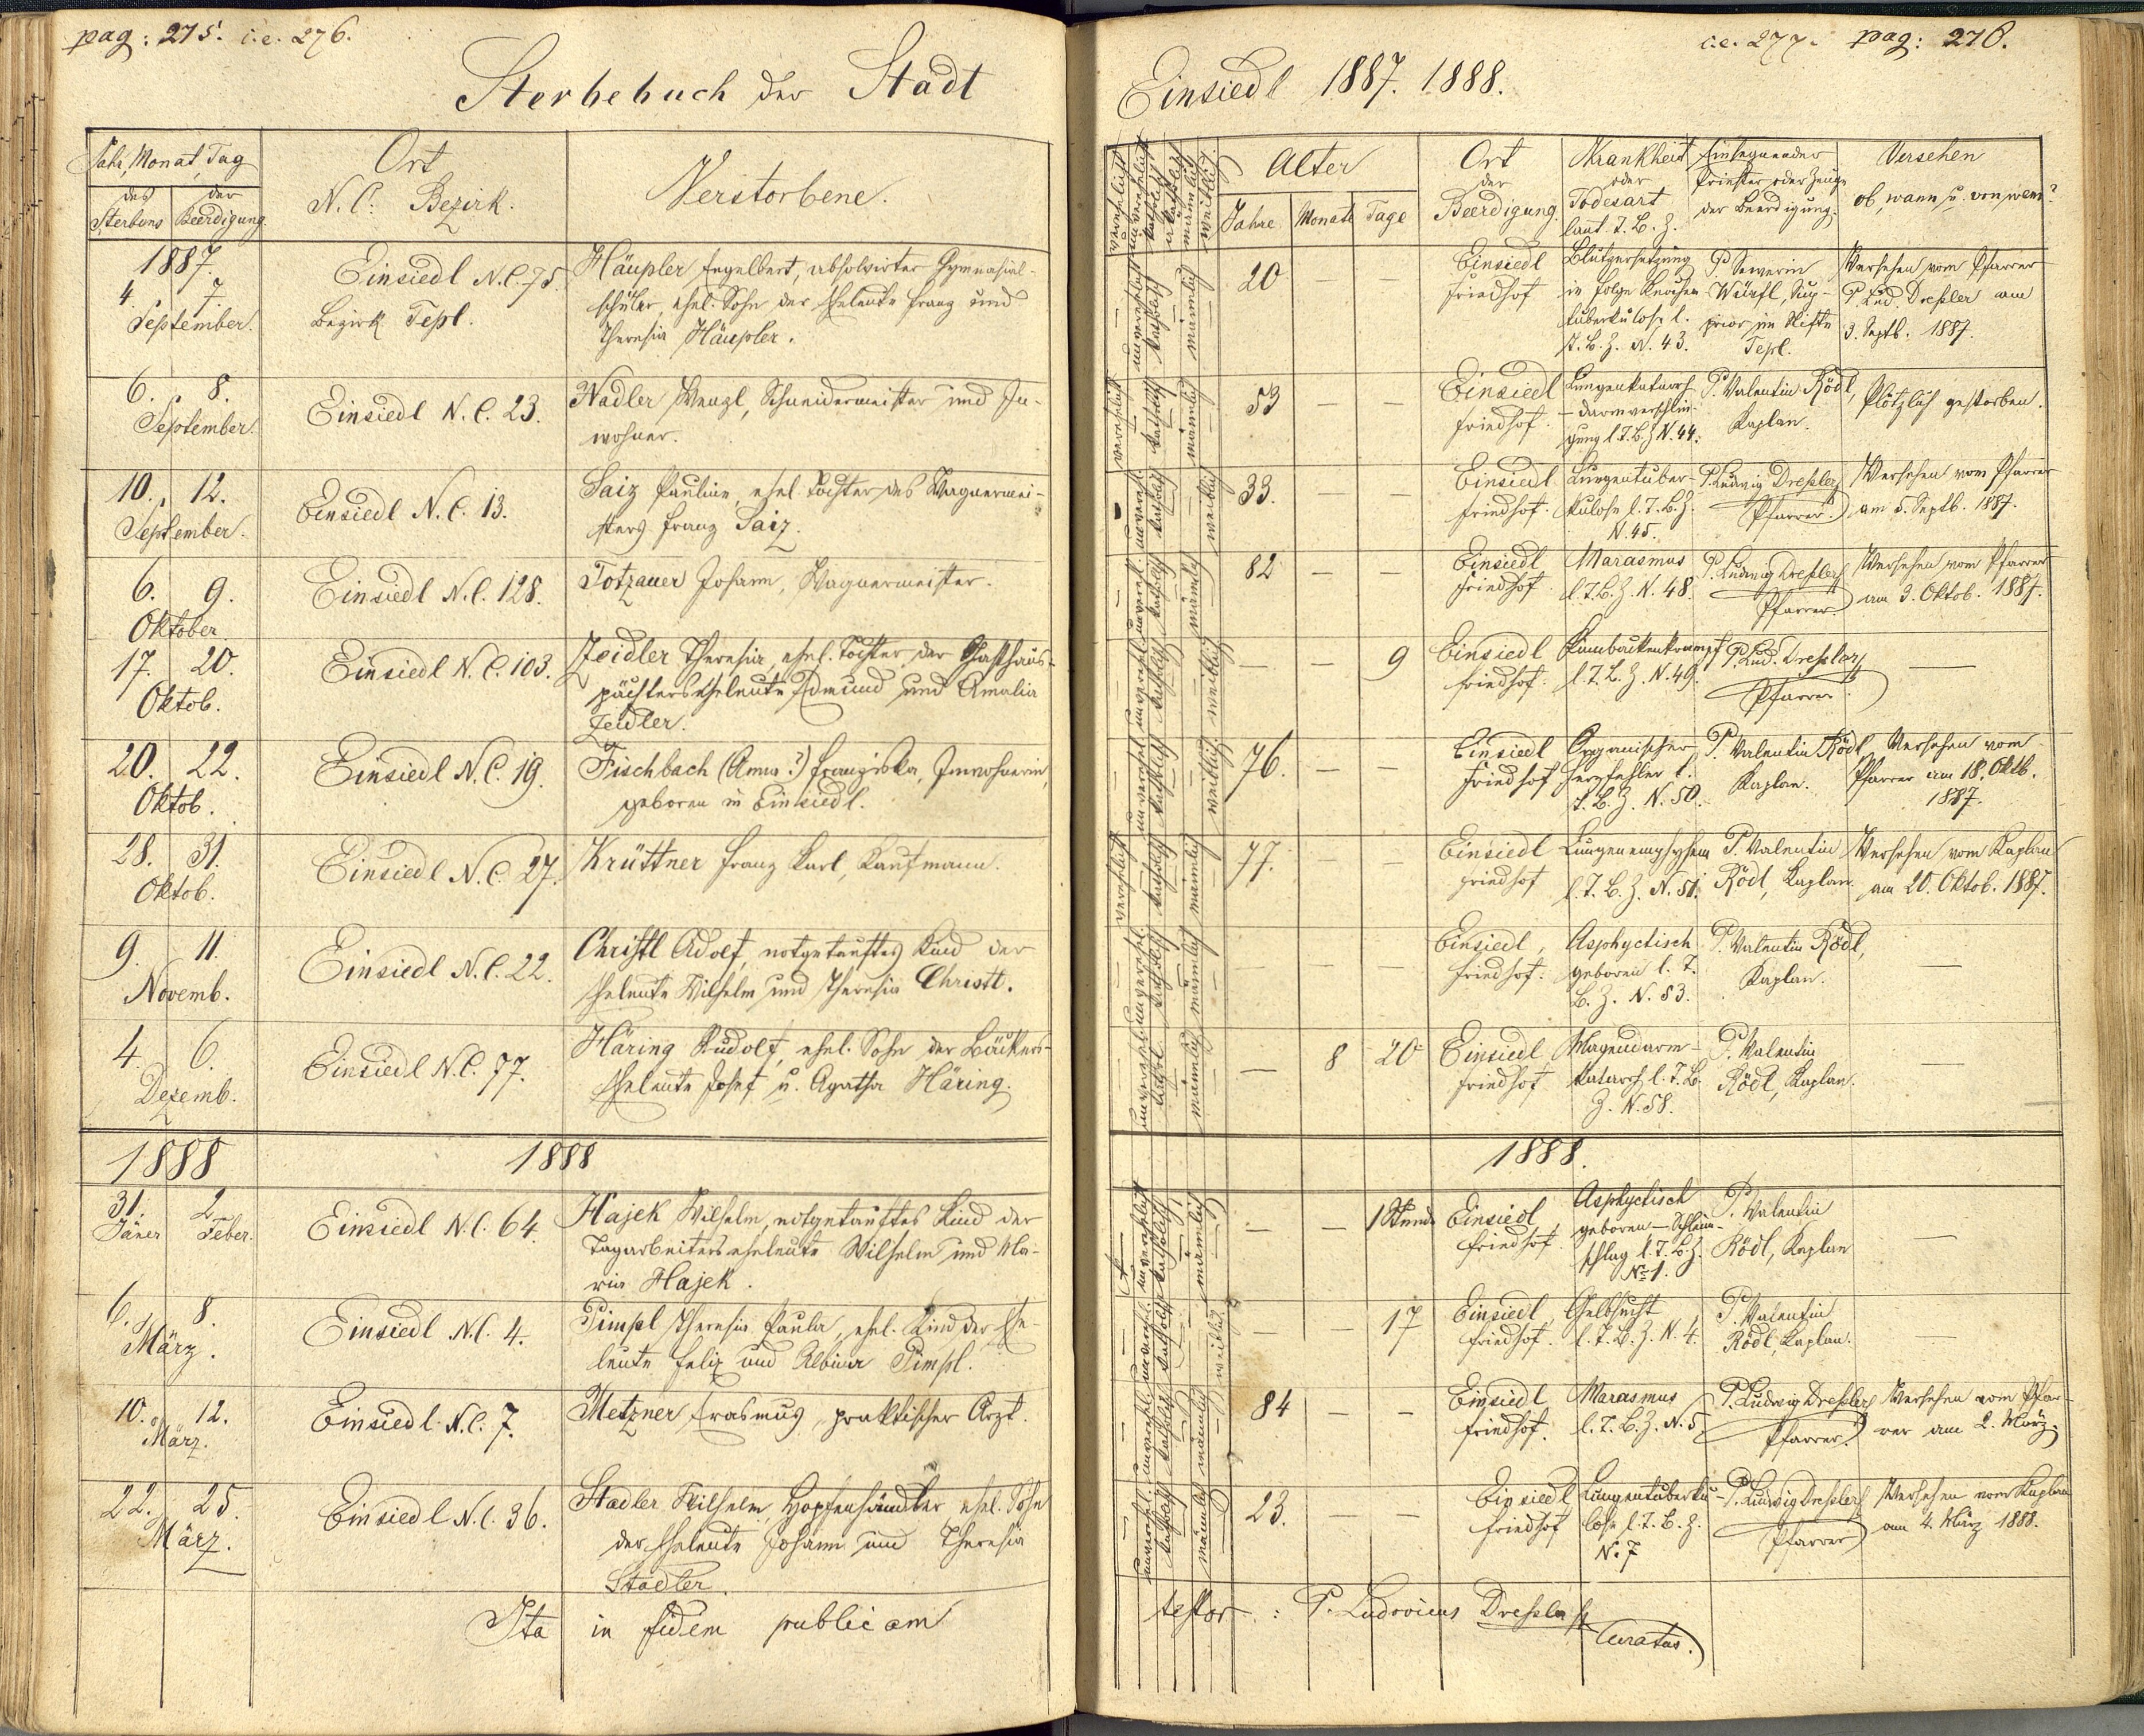 pag: 275. i.e. 276.
Sterbebuch der Stadt
Jahr, Monat, Tag
des Sterbens
der Beerdigung.
Ort
N.C. Bezirk.
Verstorbene.
1887.
4. 7.
September.
Einsiedl N.C. 75.
Bezirk Tepl.
Häupler Engelbert, absolvirter Gymnasial-
schüler, ehel. Sohn der Eheleute Franz und
Theresia Häupler.
6. 8.
September.
Einsiedl N.C. 23.
Nadler Wenzl, Schneidermeister und In-
wohner.
10. 12.
September.
Einsiedl N.C. 13.
Saiz Pauline, ehel. Tochter des Wagnermei-
sters Franz Saiz.
6. 9.
Oktober.
Einsiedl N.C. 128.
Totzauer Johann, Wagnermeister.
17. 20.
Oktob.
Einsiedl N.C. 103.
Zeidler Theresia, ehel. Tochter der Gasthaus-
pächterseheleute Edmund und Amalia
Zeidler.
20. 22.
Oktob.
Einsiedl N.C. 19.
Fischbach (Anna?) Franziska, Inwohnerin,
geboren in Einsiedl.
28. 31.
Oktob.
Einsiedl N.C. 27.
Krüttner Franz Karl, Kaufmann.
9. 11.
Novemb.
Einsiedl N.C. 22.
Christl Adolf, notgetauftes Kind der
Eheleute Wilhelm und Theresia Christl.
4. 6.
Dezemb.
Einsiedl N.C. 77.
Häring Rudolf, ehel. Sohn der Bäckers-
eheleute Josef u. Agatha Häring.
1888
1888
31. Jäner
2. Feber.
Einsiedl N.C. 64.
Hajek Wilhelm, notgetauftes Kind der
Tagarbeiterseheleute Wilhelm und Ma-
ria Hajek.
6. 8.
März.
Einsiedl N.C. 4.
Pimpl Theresia Paula, ehel. Kind der Ehe-
leute Felix und Albina Pimpl.
10. 12.
März.
Einsiedl N.C. 7.
Metzner Erasmus, praktischer Arzt.
22. 25.
März.
Einsiedl N.C. 36.
Stadler Wilhelm, Hopfenhändler, ehel. Sohn
der Eheleute Johann und Theresia
Stadler.
Ita in fidem publicam
i.e. 277. pag: 276.
Einsiedl 1887. 1888.
verehelicht
unverehelicht
katholisch
akatholisch
männlich
weiblich
Alter
Jahre Monate Tage
Ort
der
Beerdigung.
Krankheit
oder
Todesart
laut T.B.Z.
Einsegnender
Priester oder Zeuge
der Beerdigung.
Versehen
ob, wann u. von wem?
unverehelicht katholisch männlich
20 — —
Einsiedl
Friedhof
Blutzersetzung
in Folge Knochen-
tuberkulose l.
T.B.Z. N. 43.
P. Severin
Würfl, Sup-
prior im Stifte
Tepl.
Versehen vom Pfarrer
P. Lud. Dreßler am
3. Septb. 1887.
verehelicht katholisch männlich
53 — —
Einsiedl
Friedhof.
Lungenkatarrh
- Darmverschlin-
gung l.T.B.Z. N. 44.
P. Valentin Rödl,
Kaplan.
Plötzlich gestorben.
unvereh. katholisch weiblich
33. — —
Einsiedl
Friedhof.
Lungentuber-
kulose l.T.B.Z.
N. 45.
P. Ludwig Dreßler
Pfarrer.
Versehen vom Pfarrer
am 5. Septb. 1887.
unvereh. katholisch männlich
82 — —
Einsiedl
Friedhof
Marasmus
l.T.B.Z. N. 48.
P. Ludwig Dreßler
Pfarrer.
Versehen vom Pfarrer
am 3. Oktob. 1887.
unverehel. katholisch weiblich
— — 9
Einsiedl
Friedhof.
Kinnbackenkrampf
l.T.B.Z. N. 49.
P. Lud. Dreßler
Pfarrer.
—
unverehel. katholisch weiblich
76. — —
Einsiedl
Friedhof.
Organischer
Herzfehler l.
T.B.Z. N. 50.
P. Valentin Rödl
Kaplan.
Versehen vom
Pfarrer am 18. Oktb.
1887.
verehelicht katholisch männlich
77. —
Einsiedl
Friedhof
Lungenemphysem
l.T.B.Z. N. 51.
P. Valentin
Rödl, Kaplan.
Versehen vom Kaplan
am 20. Oktob. 1887.
unverehel. katholisch männlich
— — —
Einsiedl,
Friedhof.
Asphyctisch
geboren l. T.
B.Z. N. 53.
P. Valentin Rödl,
Kaplan.
—
unverehel. kathol. männlich
— 8 20
Einsiedl
Friedhof
Magendarm-
katarrh l.T.B.
Z. N. 58.
P. Valentin
Rödl, Kaplan.
—
1888.
unverehelicht katholisch männlich
— — 1 Stunde
Einsiedl
Friedhof.
Asphyctisch
geboren - Schleim-
schlag l.T.B.Z.
No 1.
P. Valentin
Rödl, Kaplan
—
unverehel. katholisch weiblich
— — 17
Einsiedl,
Friedhof.
Gelbsucht
l.T.B.Z. N. 4.
P. Valentin
Rödl, Kaplan.
—
unverehel. katholisch männlich
84 —
Einsiedl
Friedhof.
Marasmus
l.T.B.Z. N. 5.
P. Ludwig Dreßler
Pfarrer.
Versehen vom Pfar-
rer am 2. März.
unverehel. katholisch männlich
23. — —
Einsiedl
Friedhof
Lungentuberku-
lose l.T.B.Z.
N. 7
P. Ludwig Dreßler
Pfarrer
Versehen vom Kaplan
am 4. März 1888.
testor: P. Ludovicus Dreßler
Curatus.